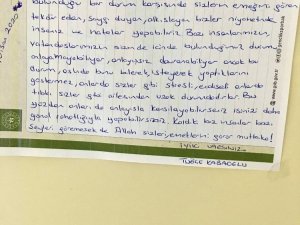 bulunduğu bir durum karşısında sizlerin emeğini gören
takdir eden, saygı duyan, alkışlayan bizler niyetinde
insanız ve hatalar yapabiliriz. Bazı insanlarımızın,
vatandaşlarımızın aramızda içinde bulunduğumuz durumu
anlayamayabiliyor, anlayışsız davranabiliyor ancak bu
durum, aslında bunu bilerek, isteyerek yaptıklarını
göstermez, onlarda sizler gibi stresli, endişeli onlarda
tıpkı sizler gibi ailesinden uzak durumdadırlar. Bu
yüzden onları da anlayışla karşılayabilirseniz işinizi daha
gönül rahatlığıyla yapabilirsiniz. Kaldı ki bazı insanlar bazı
şeyleri göremese de Allah sizleri, emeklerini görür mutlaka!
İYİKİ VARSINIZ
TUĞÇE KABAOĞLU
2020